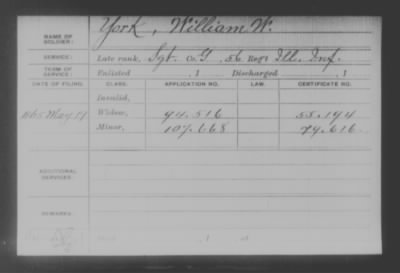 NAME OF SOLDIER: York, William W.
SERVICE: Late rank, Sgt. Co. G, 56 Reg't Ill. Inf.
TERM OF SERVICE: Enlisted , 1 Discharged , 1
DATE OF FILING. CLASS. APPLICATION NO. LAW. CERTIFICATE NO.
Invalid,
1865 May Widow, 94.516 55.194
Minor, 107.668 79.616
ADDITIONAL SERVICES:
REMARKS: